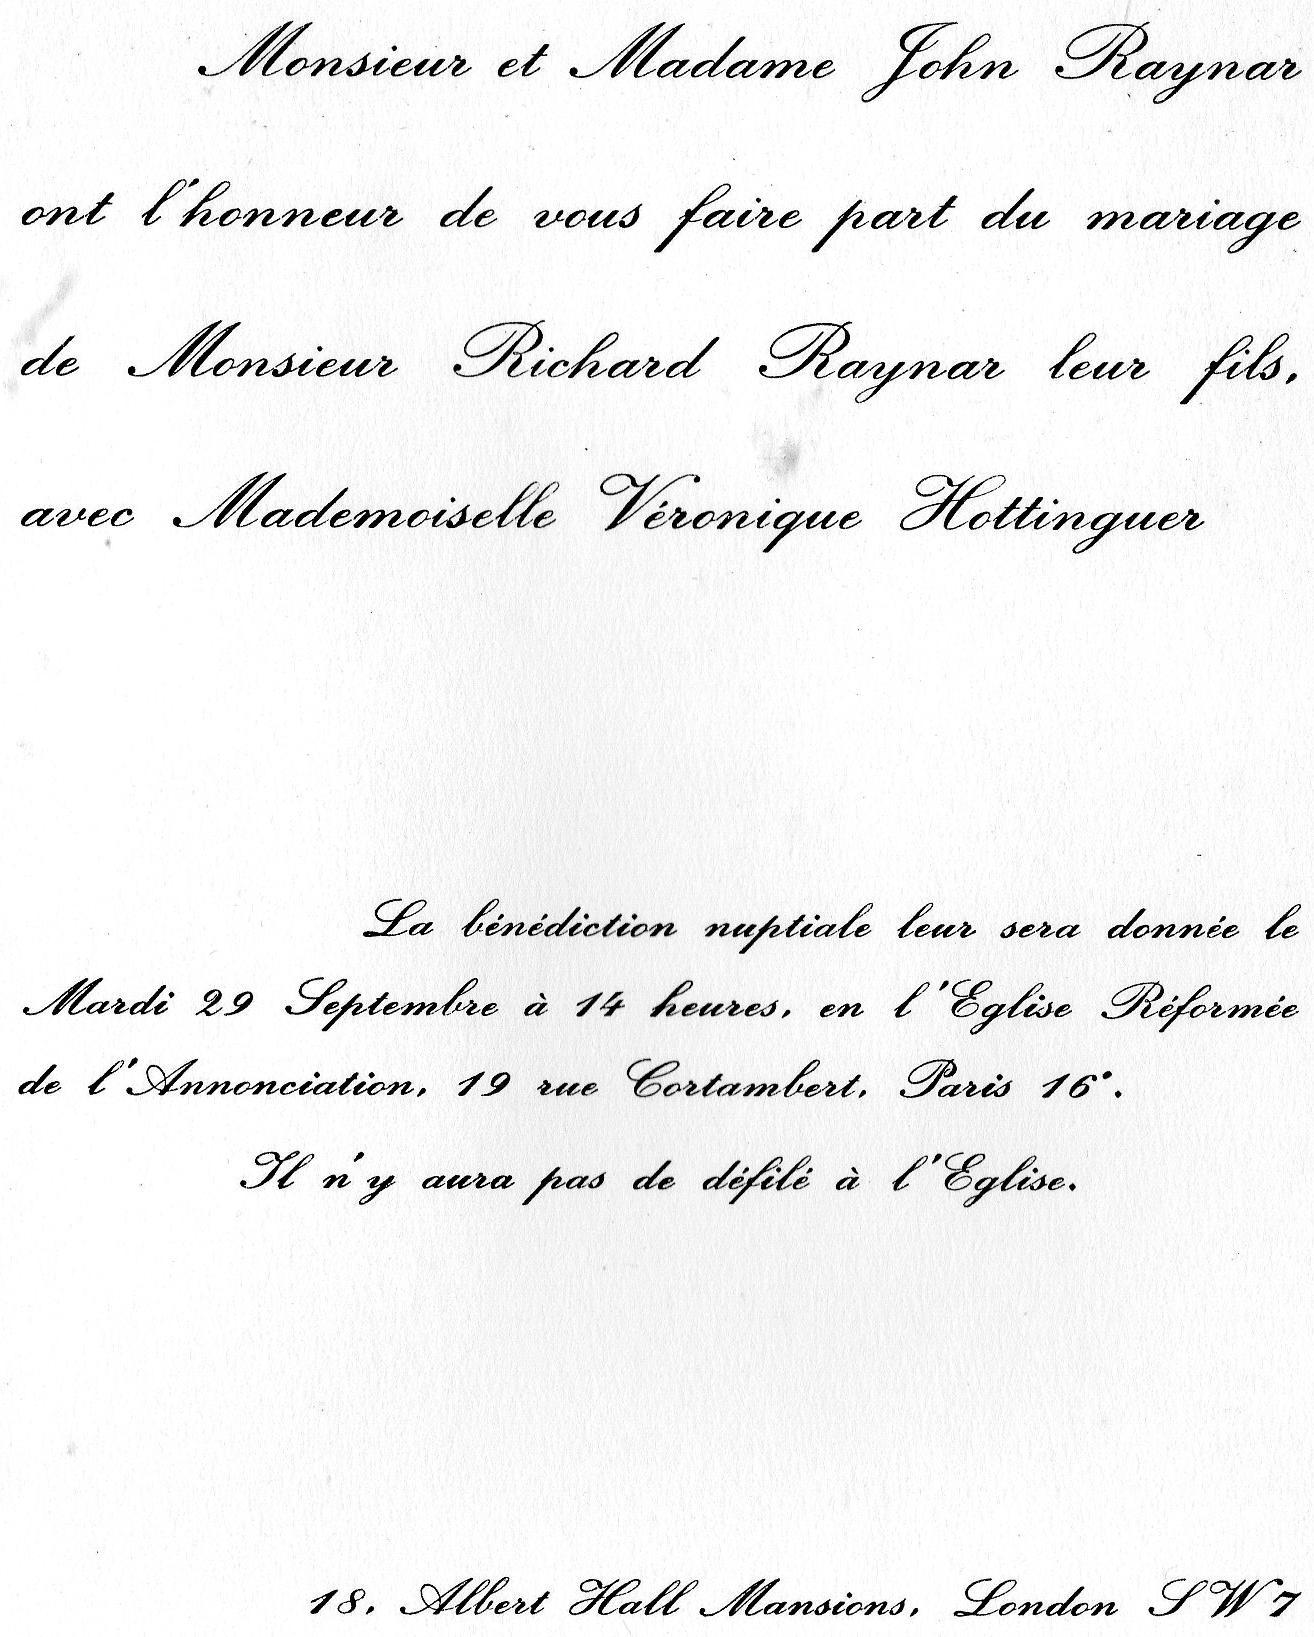 Monsieur et Madame John Raynar
ont l'honneur de vous faire part du mariage
de Monsieur Richard Raynar leur fils,
avec Mademoiselle Véronique Hottinguer
La bénédiction nuptiale leur sera donnée le
Mardi 29 Septembre à 14 heures, en l'Eglise Réformée
de l'Annonciation, 19 rue Cortambert, Paris 16e.
Il n'y aura pas de défilé à l'Eglise.
18, Albert Hall Mansions, London SW7